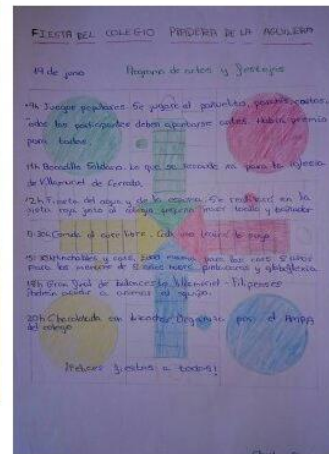 FIESTA DEL COLEGIO PRADERA DE LA AGUILERA
19 de junio Programa de actos y festejos
9h Juegos populares. Se jugará al pañuelito,
todos los participantes deben apuntarse antes. Habrá premio
para todos.
11h Bocadillo Solidario. Lo que se recaude irá para la iglesia
de Villamuriel de Cerrato.
12h Fiesta del agua y de la espuma. Se realizará en la
pista roja traer toalla y bañador
Comida al aire libre. Cada uno traerá lo suyo
para los
para los menores de 5 años habrá pintacaras y globoflexia
18h Gran final de baloncesto Villamuriel - Filipenses
acudir a animar al equipo.
20h Chocolatada con bizcochos Organizada por el AMPA
del colegio
¡Felices fiestas a todos!